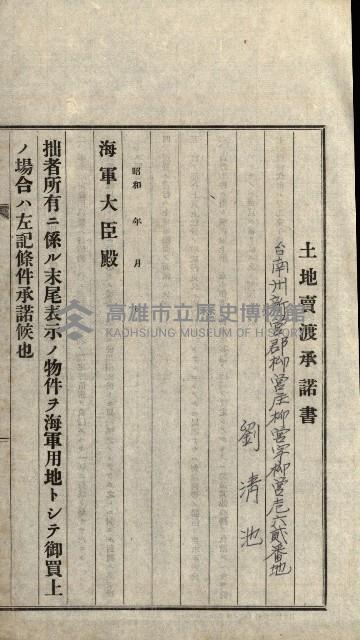 土地賣渡承諾書
台南州新營郡柳營庄柳營字柳營壱六貳番地
劉清池
昭和 年 月
海軍大臣殿
拙者所有ニ係ル末尾表示ノ物件ヲ海軍用地トシテ御買上
ノ場合ハ左記條件承諾候也
高雄市立歷史博物館
KAOHSIUNG MUSEUM OF HISTORY